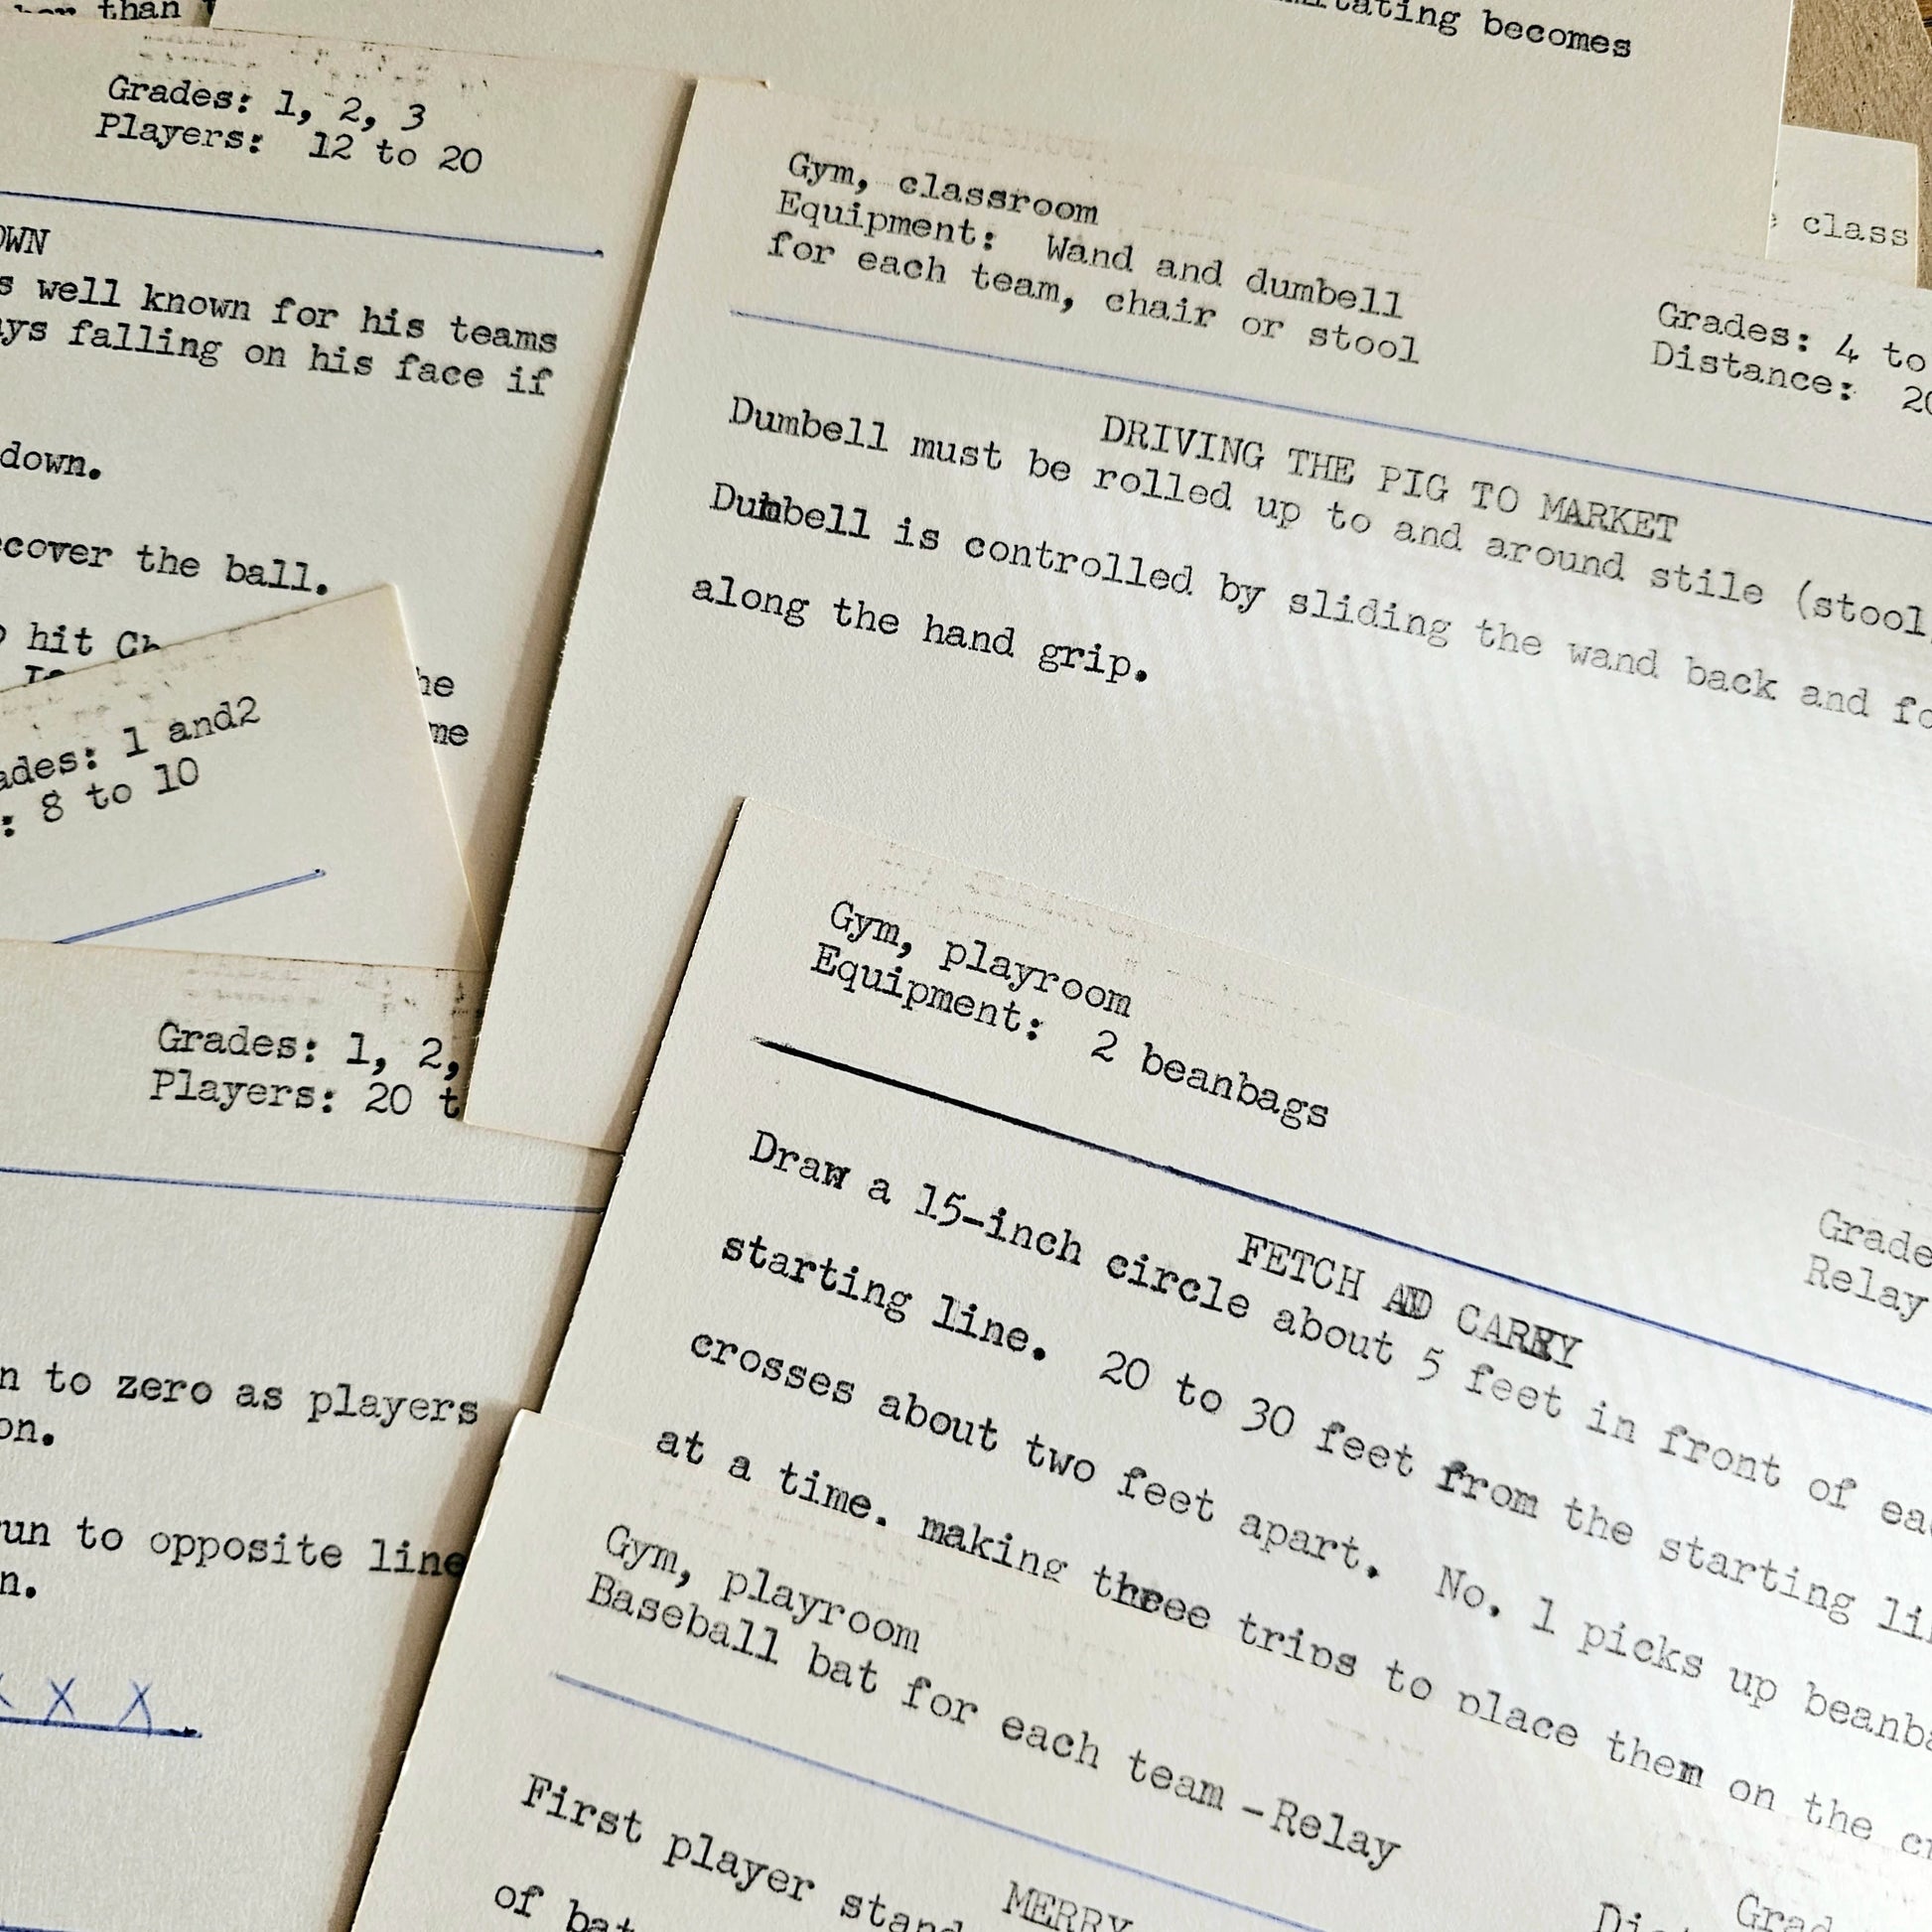 than
tating becomes
class
Grades: 1, 2, 3
Players: 12 to 20
OWN
s well known for his teams
ays falling on his face if
down.
ecover the ball.
hit Ch
he
me
ades: 1 and2
: 8 to 10
Grades: 1, 2,
Players: 20 t
n to zero as players
on.
run to opposite line
n.
X X X
Gym, classroom
Equipment: Wand and dumbell
for each team, chair or stool
Grades: 4 to
Distance: 20
DRIVING THE PIG TO MARKET
Dumbell must be rolled up to and around stile (stool,
Dumbell is controlled by sliding the wand back and fo
along the hand grip.
Gym, playroom
Equipment: 2 beanbags
Grade
Relay
FETCH AND CARRY
Draw a 15-inch circle about 5 feet in front of eac
starting line. 20 to 30 feet from the starting lin
crosses about two feet apart. No. 1 picks up beanba
at a time. making three trips to place them on the cr
Gym, playroom
Baseball bat for each team -Relay
Grad
Dist
MERRY
First player stand
of bat